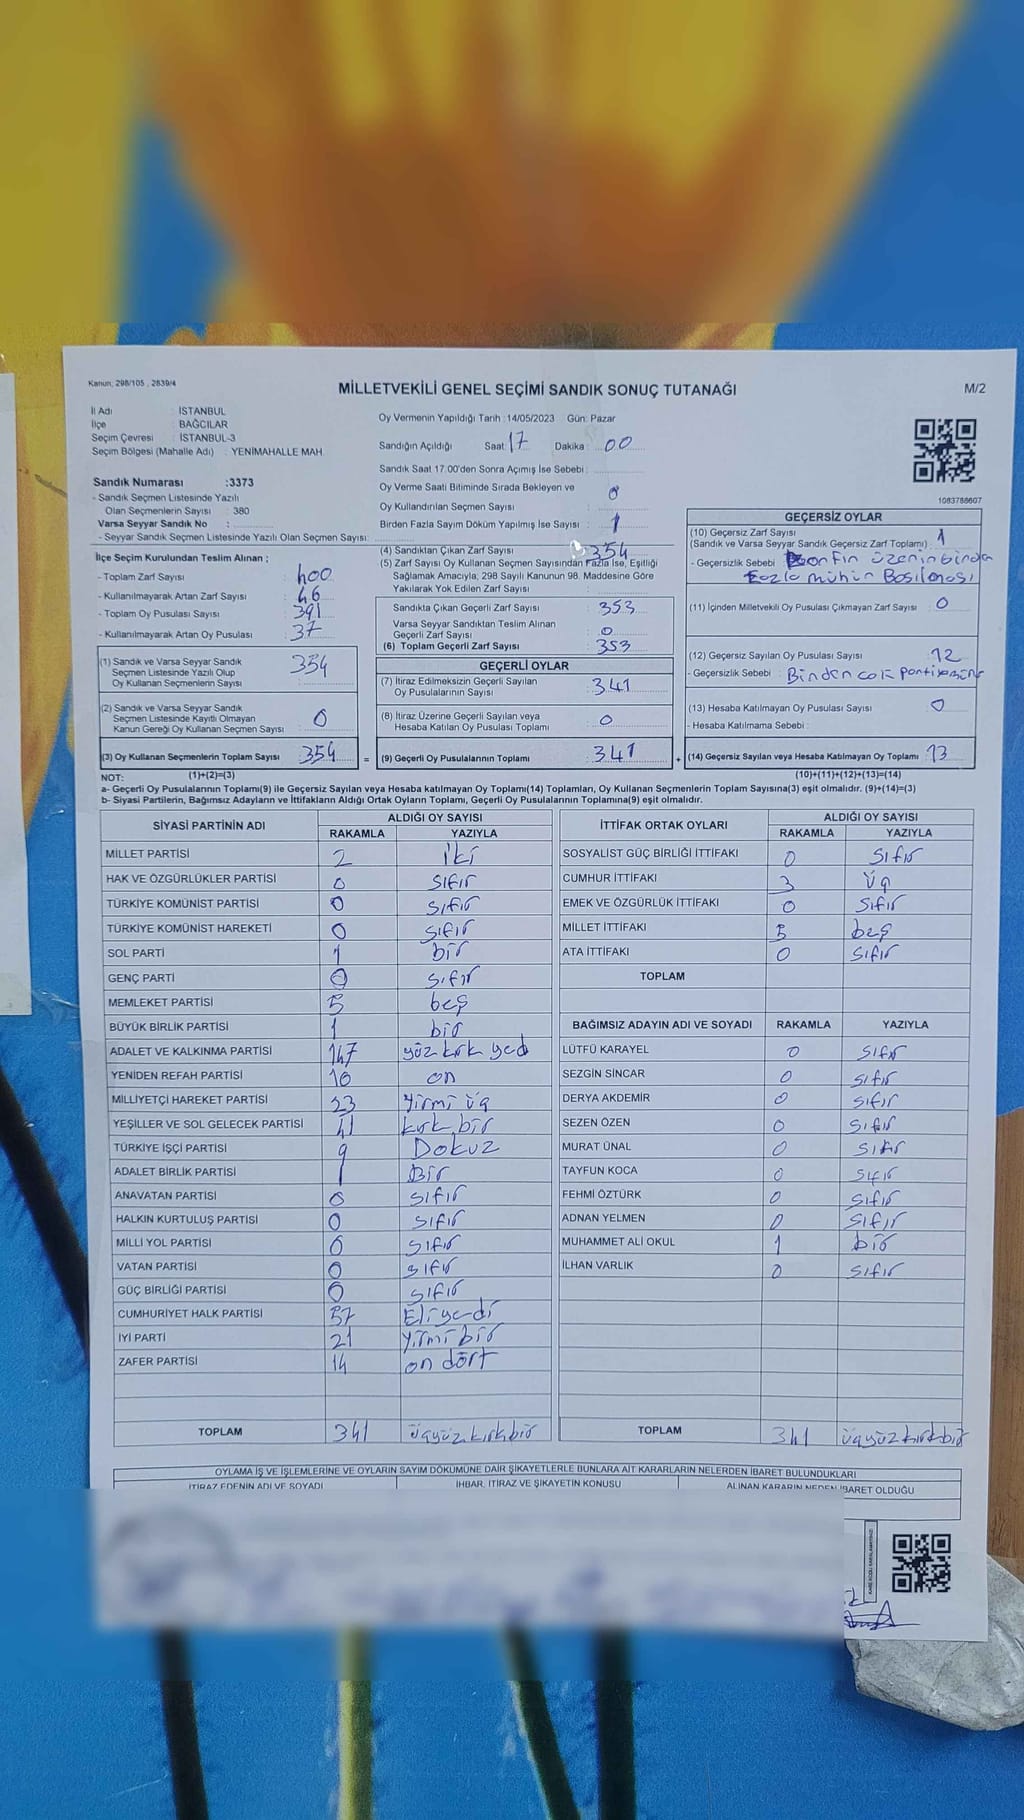 Kanun, 298/105 , 2839/4
MİLLETVEKİLİ GENEL SEÇİMİ SANDIK SONUÇ TUTANAĞI
M/2
İl Adı : İSTANBUL
İlçe : BAĞCILAR
Seçim Çevresi : İSTANBUL-3
Seçim Bölgesi (Mahalle Adı) : YENİMAHALLE MAH.
Sandık Numarası :3373
- Sandık Seçmen Listesinde Yazılı
Olan Seçmenlerin Sayısı : 380
Varsa Seyyar Sandık No :
- Seyyar Sandık Seçmen Listesinde Yazılı Olan Seçmen Sayısı:
Oy Vermenin Yapıldığı Tarih :14/05/2023 Gün: Pazar
Sandığın Açıldığı Saat: 17 Dakika : 00
Sandık Saat 17.00'den Sonra Açımış İse Sebebi :
Oy Verme Saati Bitiminde Sırada Bekleyen ve
Oy Kullandırılan Seçmen Sayısı : 0
Birden Fazla Sayım Döküm Yapılmış İse Sayısı : 1
1083788607
İlçe Seçim Kurulundan Teslim Alınan ;
- Toplam Zarf Sayısı : 400
- Kullanılmayarak Artan Zarf Sayısı : 46
- Toplam Oy Pusulası Sayısı : 391
- Kullanılmayarak Artan Oy Pusulası : 37
(1) Sandık ve Varsa Seyyar Sandık
Seçmen Listesinde Yazılı Olup
Oy Kullanan Seçmenlerin Sayısı : 354
(2) Sandık ve Varsa Seyyar Sandık
Seçmen Listesinde Kayıtlı Olmayan
Kanun Gereği Oy Kullanan Seçmen Sayısı : 0
(3) Oy Kullanan Seçmenlerin Toplam Sayısı : 354 =
(4) Sandıktan Çıkan Zarf Sayısı : 354
(5) Zarf Sayısı Oy Kullanan Seçmen Sayısından Fazla İse, Eşitliği
Sağlamak Amacıyla, 298 Sayılı Kanunun 98. Maddesine Göre
Yakılarak Yok Edilen Zarf Sayısı :
Sandıkta Çıkan Geçerli Zarf Sayısı : 353
Varsa Seyyar Sandıktan Teslim Alınan
Geçerli Zarf Sayısı : 0
(6) Toplam Geçerli Zarf Sayısı : 353
GEÇERLİ OYLAR
(7) İtiraz Edilmeksizin Geçerli Sayılan
Oy Pusulalarının Sayısı : 341
(8) İtiraz Üzerine Geçerli Sayılan veya
Hesaba Katılan Oy Pusulası Toplamı : 0
(9) Geçerli Oy Pusulalarının Toplamı : 341 +
GEÇERSİZ OYLAR
(10) Geçersiz Zarf Sayısı
(Sandık ve Varsa Seyyar Sandık Geçersiz Zarf Toplamı) : 1
- Geçersizlik Sebebi : üzerinbirden
fazla mühür Basılması
(11) İçinden Milletvekili Oy Pusulası Çıkmayan Zarf Sayısı : 0
(12) Geçersiz Sayılan Oy Pusulası Sayısı : 12
- Geçersizlik Sebebi : Birden çok
(13) Hesaba Katılmayan Oy Pusulası Sayısı : 0
- Hesaba Katılmama Sebebi :
(14) Geçersiz Sayılan veya Hesaba Katılmayan Oy Toplamı : 13
NOT: (1)+(2)=(3) (10)+(11)+(12)+(13)=(14)
a- Geçerli Oy Pusulalarının Toplamı(9) ile Geçersiz Sayılan veya Hesaba katılmayan Oy Toplamı(14) Toplamları, Oy Kullanan Seçmenlerin Toplam Sayısına(3) eşit olmalıdır. (9)+(14)=(3)
b- Siyasi Partilerin, Bağımsız Adayların ve İttifakların Aldığı Ortak Oyların Toplamı, Geçerli Oy Pusulalarının Toplamına(9) eşit olmalıdır.
SİYASİ PARTİNİN ADI ALDIĞI OY SAYISI
RAKAMLA YAZIYLA
MİLLET PARTİSİ 2 iki
HAK VE ÖZGÜRLÜKLER PARTİSİ 0 sıfır
TÜRKİYE KOMÜNİST PARTİSİ 0 sıfır
TÜRKİYE KOMÜNİST HAREKETİ 0 sıfır
SOL PARTİ 1 bir
GENÇ PARTİ 0 sıfır
MEMLEKET PARTİSİ 5 beş
BÜYÜK BİRLİK PARTİSİ 1 bir
ADALET VE KALKINMA PARTİSİ 147 yüz kırk yedi
YENİDEN REFAH PARTİSİ 10 on
MİLLİYETÇİ HAREKET PARTİSİ 23 Yirmi üç
YEŞİLLER VE SOL GELECEK PARTİSİ 41 kırk bir
TÜRKİYE İŞÇİ PARTİSİ 9 Dokuz
ADALET BİRLİK PARTİSİ 1 Bir
ANAVATAN PARTİSİ 0 sıfır
HALKIN KURTULUŞ PARTİSİ 0 sıfır
MİLLİ YOL PARTİSİ 0 sıfır
VATAN PARTİSİ 0 sıfır
GÜÇ BİRLİĞİ PARTİSİ 0 sıfır
CUMHURİYET HALK PARTİSİ 57 Eliyedi
İYİ PARTİ 21 Yirmi bir
ZAFER PARTİSİ 14 on dört
TOPLAM 341 üçyüzkırkbir
İTTİFAK ORTAK OYLARI ALDIĞI OY SAYISI
RAKAMLA YAZIYLA
SOSYALİST GÜÇ BİRLİĞİ İTTİFAKI 0 sıfır
CUMHUR İTTİFAKI 3 üç
EMEK VE ÖZGÜRLÜK İTTİFAKI 0 sıfır
MİLLET İTTİFAKI 5 beş
ATA İTTİFAKI 0 sıfır
TOPLAM
BAĞIMSIZ ADAYIN ADI VE SOYADI RAKAMLA YAZIYLA
LÜTFÜ KARAYEL 0 sıfır
SEZGİN SİNCAR 0 sıfır
DERYA AKDEMİR 0 sıfır
SEZEN ÖZEN 0 sıfır
MURAT ÜNAL 0 sıfır
TAYFUN KOCA 0 sıfır
FEHMİ ÖZTÜRK 0 sıfır
ADNAN YELMEN 0 sıfır
MUHAMMET ALİ OKUL 1 bir
İLHAN VARLIK 0 sıfır
TOPLAM 341 üçyüzkırkbir
OYLAMA İŞ VE İŞLEMLERİNE VE OYLARIN SAYIM DÖKÜMÜNE DAİR ŞİKAYETLERLE BUNLARA AİT KARARLARIN NELERDEN İBARET BULUNDUKLARI
İTİRAZ EDENİN ADI VE SOYADI İHBAR, İTİRAZ VE ŞİKAYETİN KONUSU ALINAN KARARIN NEDEN İBARET OLDUĞU